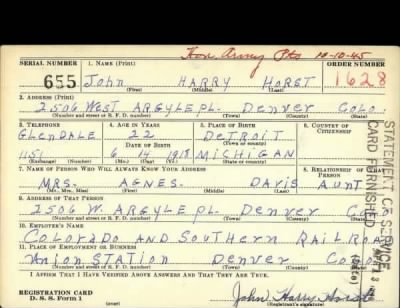 For Army Pts 10-10-45
SERIAL NUMBER 1. NAME (Print) ORDER NUMBER
655 John HARRY HORST 1628
(First) (Middle) (Last)
2. ADDRESS (Print)
2506 West ARGYLE PL. Denver COLO.
(Number and street or R. F. D. number) (Town) (County) (State)
3. TELEPHONE 4. AGE IN YEARS 5. PLACE OF BIRTH 6. COUNTRY OF CITIZENSHIP
GLenDALE 22 DeTROIT
DATE OF BIRTH (Town or county)
1151 6 14 1918 MICHIGAN
(Exchange) (Number) (Mo.) (Day) (Yr.) (State or country)
7. NAME OF PERSON WHO WILL ALWAYS KNOW YOUR ADDRESS 8. RELATIONSHIP OF THAT PERSON
MRS. AGNES. DAVIS AUNT
(Mr., Mrs., Miss) (First) (Middle) (Last)
9. ADDRESS OF THAT PERSON
2506 W. ARGYLE PL. Denver
(Number and street or R. F. D. number) (Town) (County) (State)
10. EMPLOYER'S NAME
COLORADO AND SOUTHERN RAILROAD
11. PLACE OF EMPLOYMENT OR BUSINESS
Union STATION Denver
(Number and street or R. F. D. number) (Town) (County) (State)
I AFFIRM THAT I HAVE VERIFIED ABOVE ANSWERS AND THAT THEY ARE TRUE.
REGISTRATION CARD
D. S. S. Form 1 (over) John Harry Horst
STATEMENT OF SERVICE
CARD FURNISHED